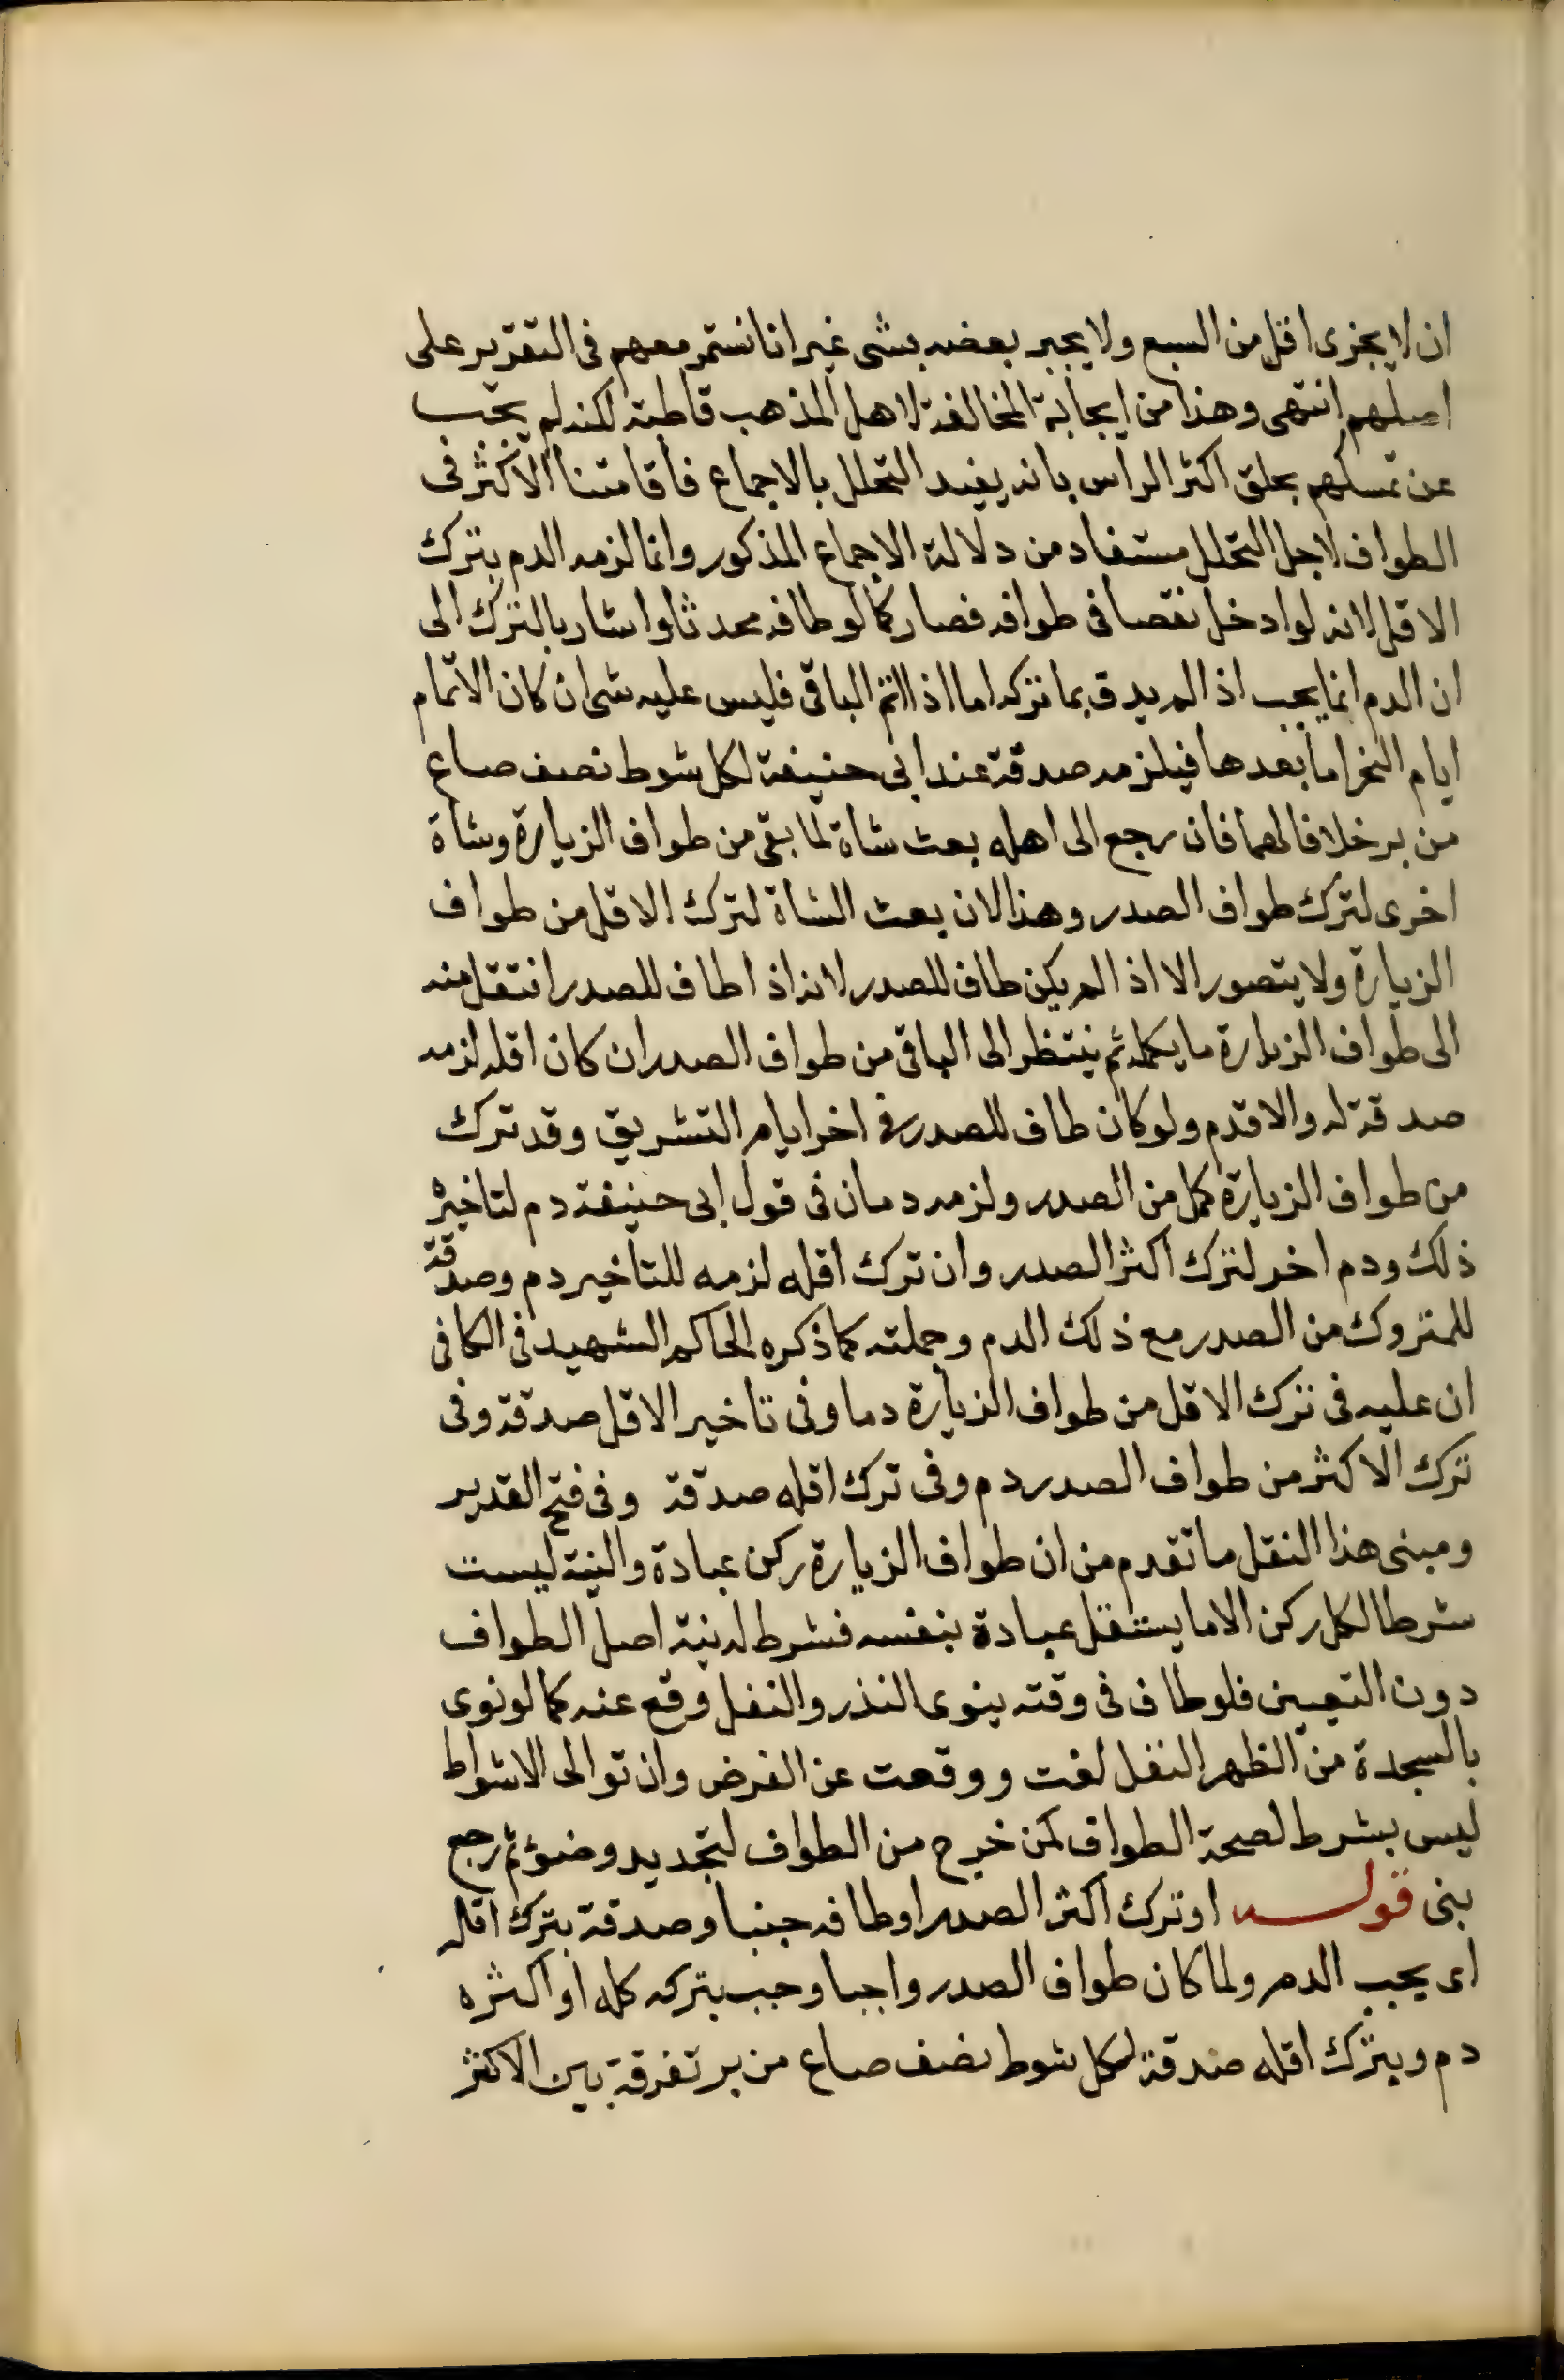 ان لا يجزى اقل من السبع ولا يجبر بعضه بشى غير انا نستمر معهم فى التقرير على
اصلهم انتهى وهذا من ابحاثه المخالفة لاهل المذهب قاطبة لكنه لم يجب
عن تمسكهم بحلق اكثر الراس بانه يفيد التحلل بالاجماع فاقامتنا الاكثر فى
الطواف لاجل التحلل مستفاد من دلالة الاجماع المذكور وانما لزمه الدم بترك
الاقل لانه لو ادخل نقصا فى طوافه فصار كما لو طافه محدثا واشار بالترك الى
ان الدم انما يجب اذا لم يدق بما تركه اما اذا اتم الباقى فليس عليه شى ان كان الاتمام
ايام النحر اما بعدها فيلزمه صدقة عند ابى حنيفة لكل شوط نصف صاع
من بر خلافا لهما فان رجع الى اهله بعث شاة لما بقى من طواف الزيارة وشاة
اخرى لترك طواف الصدر وهذا لان بعث الشاة لترك الاقل من طواف
الزيارة ولا يتصور الا اذا لم يكن طاف للصدر لانه اذا طاف للصدر انتقل منه
الى طواف الزيارة ما يكمله ثم ينتظر الى الباقى من طواف الصدر ان كان اقله لزمه
صدقة له والا قدم ولو كان طاف للصدر فى اخر ايام التشريق وقد ترك
من طواف الزيارة كمل من الصدر ولزمه دمان فى قول ابى حنيفة دم لتاخيره
ذلك ودم اخر لترك اكثر الصدر وان ترك اقله لزمه للتاخير دم وصدقة
للمتروك من الصدر مع ذلك الدم وجملته كما ذكره الحاكم الشهيد فى الكافى
ان عليه فى ترك الاقل من طواف الزيارة دما وفى تاخير الاقل صدقة وفى
ترك الاكثر من طواف الصدر دم وفى ترك اقله صدقة وفى فتح القدير
ومبنى هذا النقل ما تقدم من ان طواف الزيارة ركن عبادة والنية ليست
شرطا لكل ركن الا ما يستقل عبادة بنفسه فشرط له نية اصل الطواف
دون التعيين فلو طاف فى وقته ينوى النذر والنفل وقع عنه كما لو نوى
بالسجدة من الظهر النفل لغت ووقعت عن الفرض وان توالى الاشواط
ليس بشرط لصحة الطواف كمن خرج من الطواف لتجديد وضوء ثم رجع
بنى قوله او ترك اكثر الصدر او طافه جنبا وصدقة بترك اقله
اى يجب الدم ولما كان طواف الصدر واجبا وجب بتركه كله او اكثره
دم وبترك اقله صدقة لكل شوط نصف صاع من بر تفرقة بين الاكثر